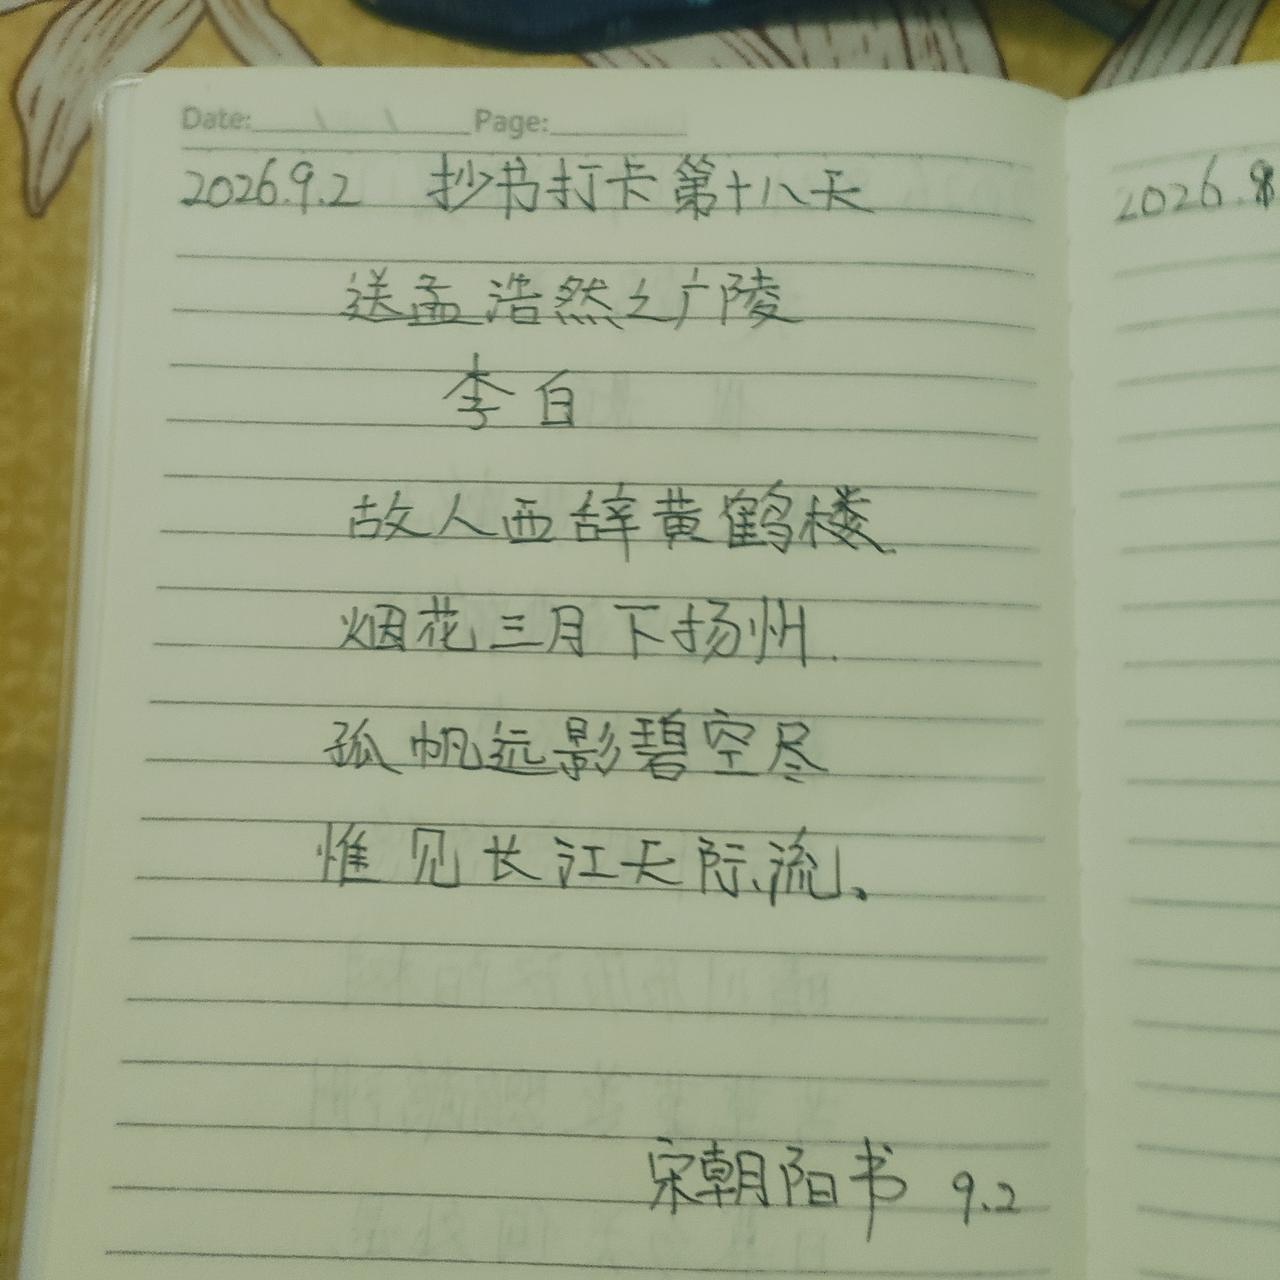 Date: \ \ Page:
2026.9.2 抄书打卡第十八天
送孟浩然之广陵
李白
故人西辞黄鹤楼
烟花三月下扬州.
孤帆远影碧空尽
惟见长江天际流。
宋朝阳书 9.2
2026.